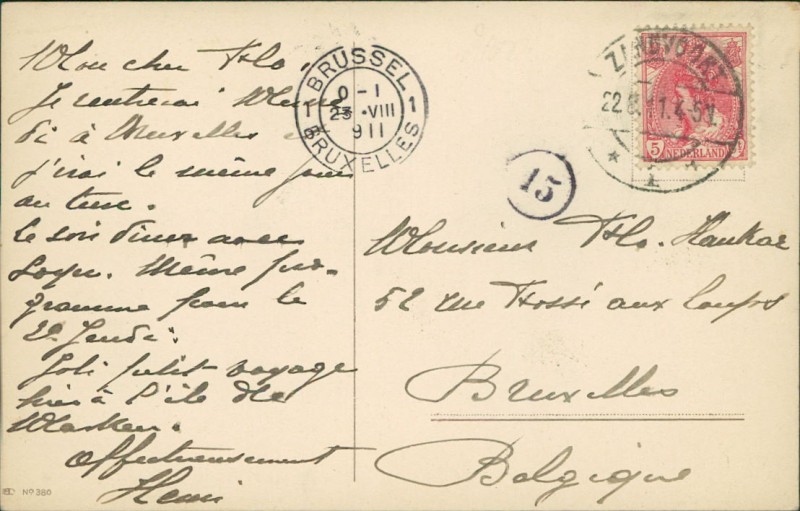 Mon cher Flo.
Je rentrerai
di à Bruxelles et
j'irai le même jour
au
Le soir diner avec
Même pro-
gramme pour le
Jeudi.
Joli petit voyage
hier à l'île de
Marken.
Affectueusement
Henri
BRUSSEL 1
0-1
23 VIII
911
1 BRUXELLES
15
ZANDVOORT
22.8.11.4-5N.
1
5 NEDERLAND
Monsieur Flo. Hankar
52 rue Fossé aux loups
Bruxelles
Belgique
No 380